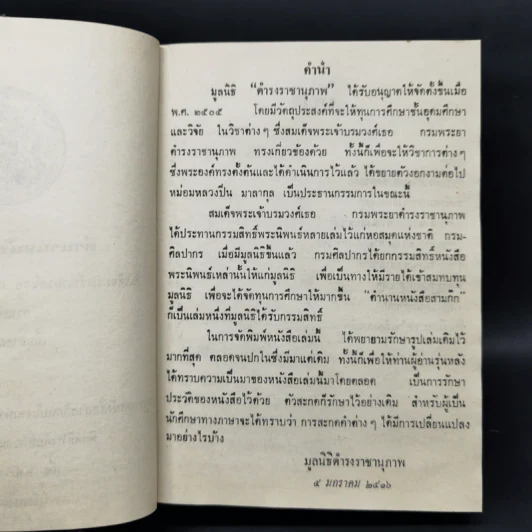 คำนำ
มูลนิธิ “ดำรงราชานุภาพ” ได้รับอนุญาตให้จัดตั้งขึ้นเมื่อ
พ.ศ. ๒๕๐๕ โดยมีวัตถุประสงค์ที่จะให้ทุนการศึกษาชั้นอุดมศึกษา
และวิจัย ในวิชาต่าง ๆ ซึ่งสมเด็จพระเจ้าบรมวงศ์เธอ กรมพระยา
ดำรงราชานุภาพ ทรงเกี่ยวข้องด้วย ทั้งนี้ก็เพื่อจะให้วิชาการต่าง ๆ
ซึ่งพระองค์ทรงตั้งต้นและได้ดำเนินการไว้แล้ว ได้ขยายตัวงอกงามต่อไป
หม่อมหลวงปิ่น มาลากุล เป็นประธานกรรมการในขณะนี้
สมเด็จพระเจ้าบรมวงศ์เธอ กรมพระยาดำรงราชานุภาพ
ได้ประทานกรรมสิทธิ์พระนิพนธ์หลายเล่มไว้แก่หอสมุดแห่งชาติ กรม-
ศิลปากร เมื่อมีมูลนิธิขึ้นแล้ว กรมศิลปากรได้ยกกรรมสิทธิ์หนังสือ
พระนิพนธ์เหล่านั้นให้แก่มูลนิธิ เพื่อเป็นทางให้มีรายได้เข้าสมทบทุน
มูลนิธิ เพื่อจะได้จัดทุนการศึกษาให้มากขึ้น “ตำนานหนังสือสามก๊ก”
ก็เป็นเล่มหนึ่งที่มูลนิธิได้รับกรรมสิทธิ์
ในการจัดพิมพ์หนังสือเล่มนี้ ได้พยายามรักษารูปเล่มเดิมไว้
มากที่สุด ตลอดจนปกในซึ่งมีมาแต่เดิม ทั้งนี้ก็เพื่อให้ท่านผู้อ่านรุ่นหลัง
ได้ทราบความเป็นมาของหนังสือเล่มนี้มาโดยตลอด เป็นการรักษา
ประวัติของหนังสือไว้ด้วย ตัวสะกดก็รักษาไว้อย่างเดิม สำหรับผู้เป็น
นักศึกษาทางภาษาจะได้ทราบว่า การสะกดคำต่าง ๆ ได้มีการเปลี่ยนแปลง
มาอย่างไรบ้าง
มูลนิธิดำรงราชานุภาพ
๕ มกราคม ๒๕๑๖